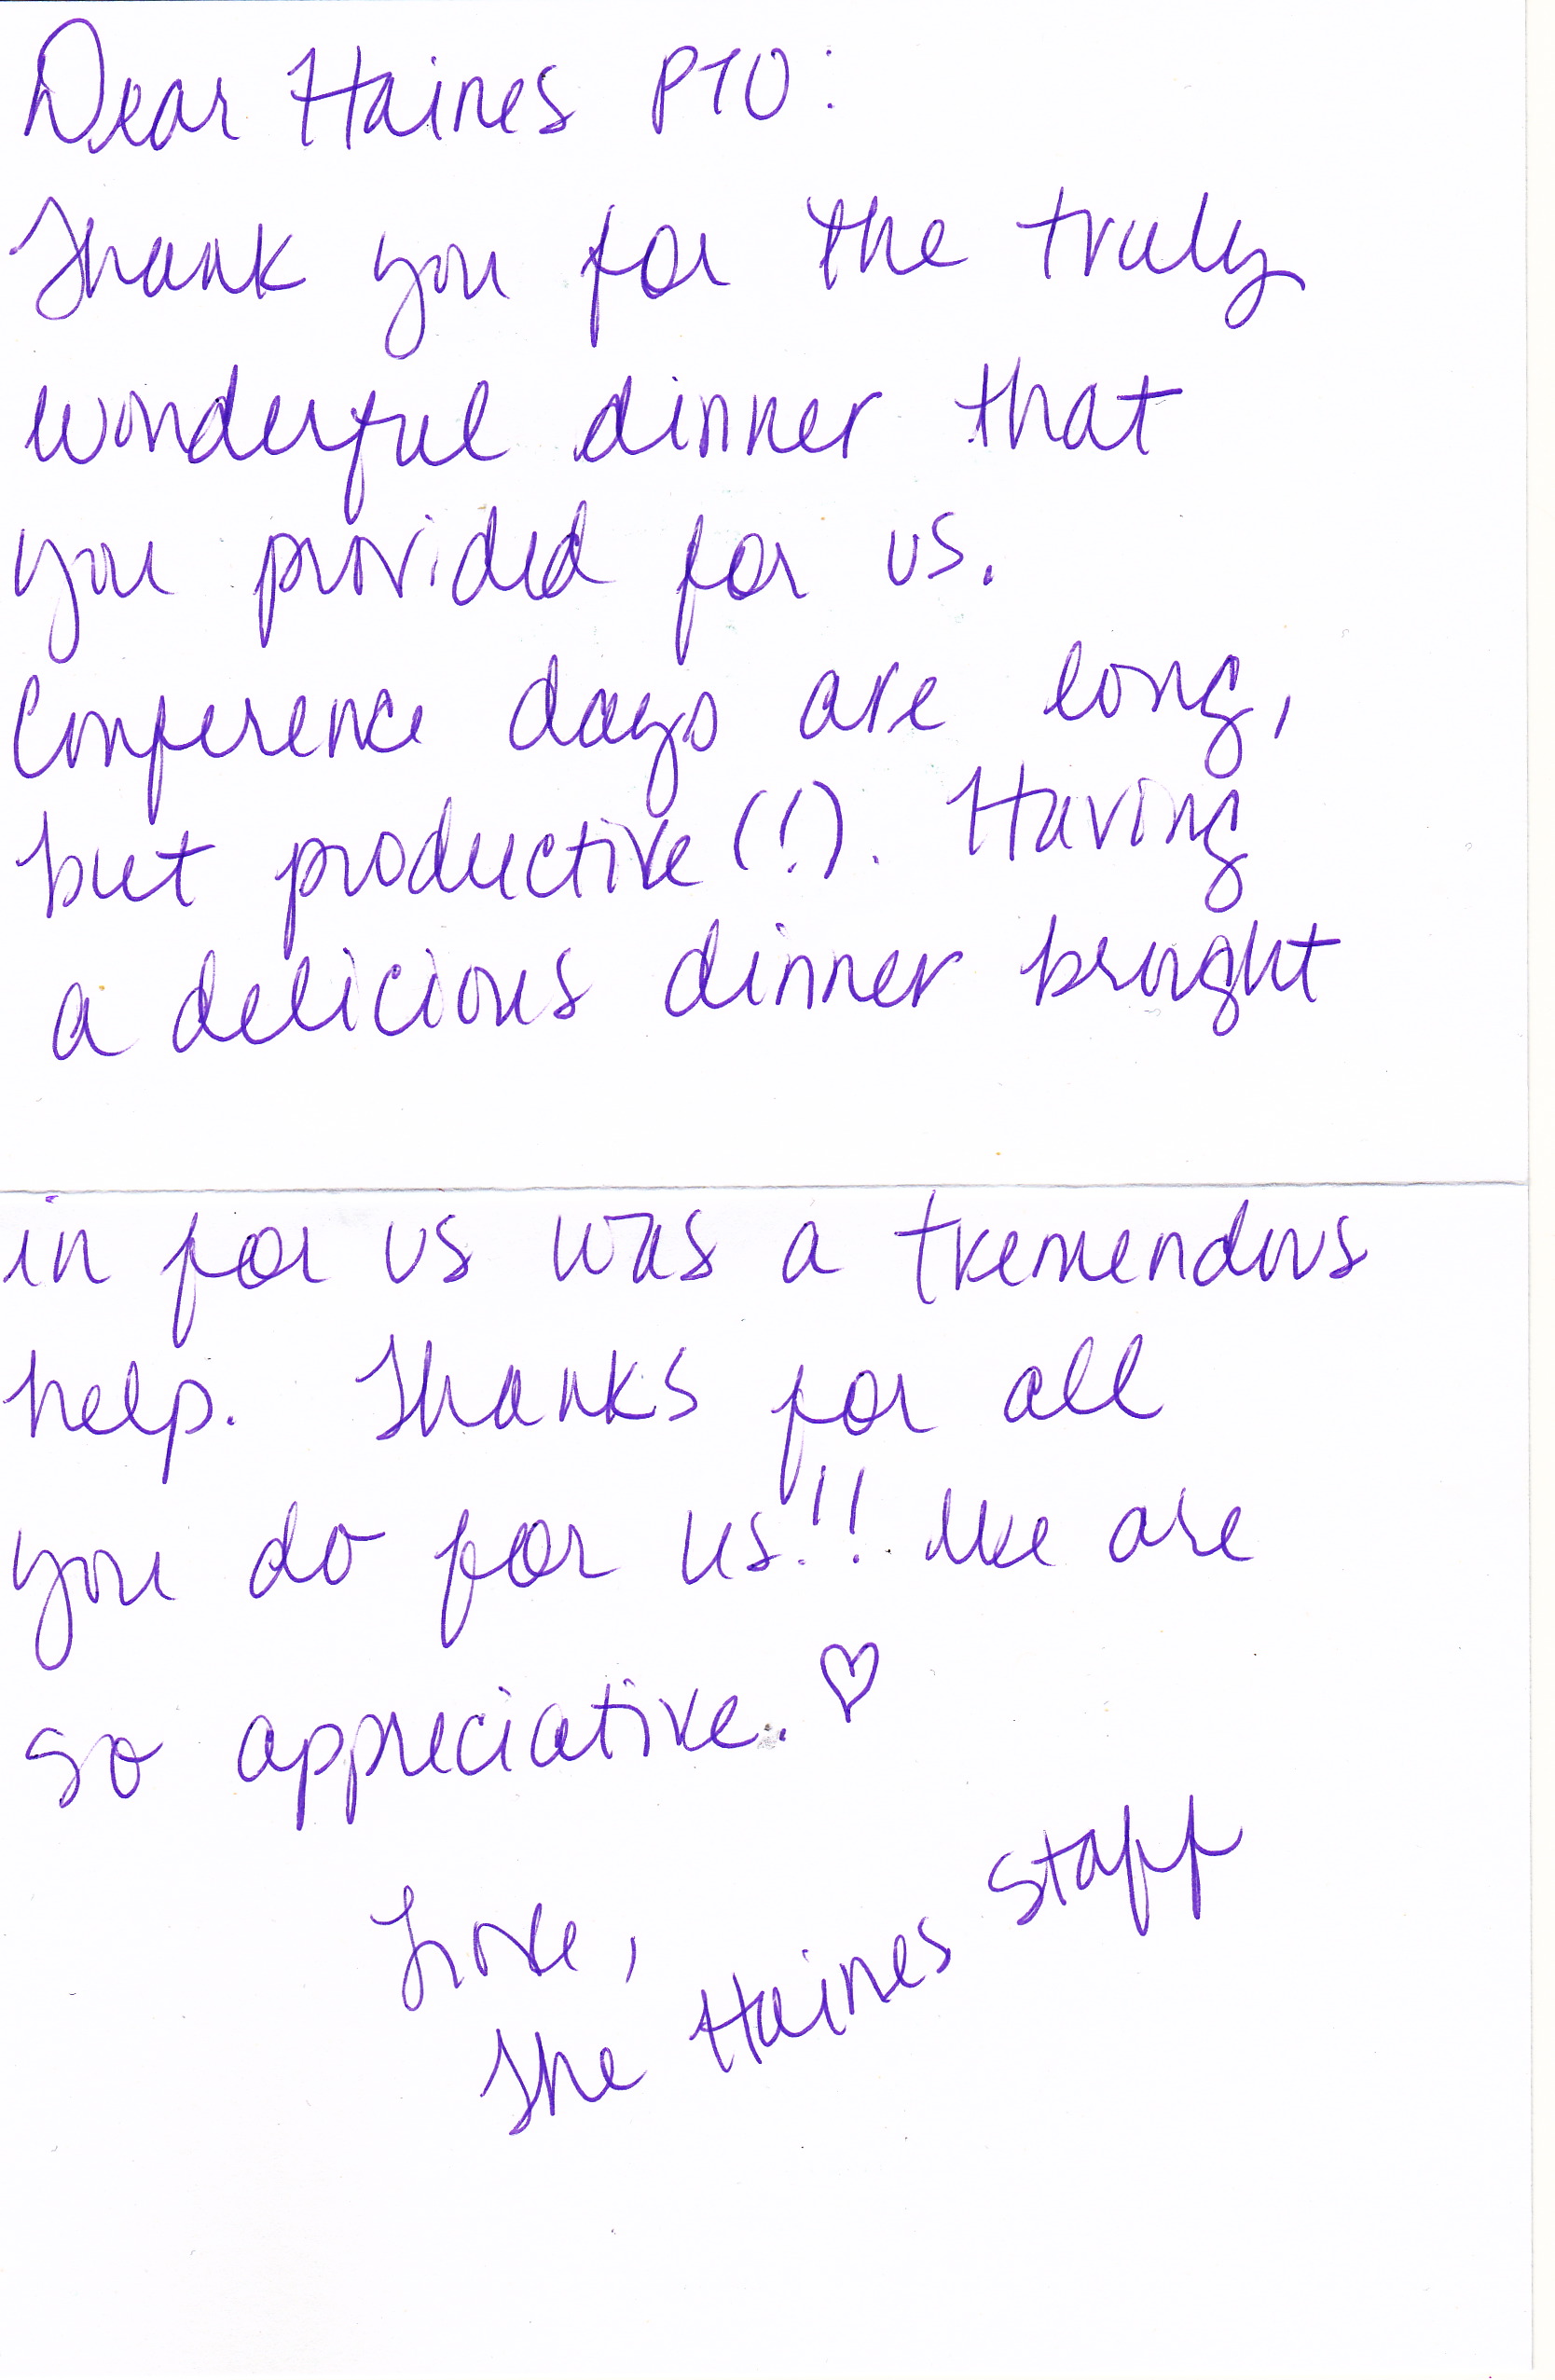 Dear Haines PTO:
Thank you for the truly
wonderful dinner that
you provided for us.
Conference days are long,
but productive(!). Having
a delicious dinner brought
in for us was a tremendous
help. Thanks for all
you do for us!! We are
so appreciative. ♡
Love,
The Haines Staff